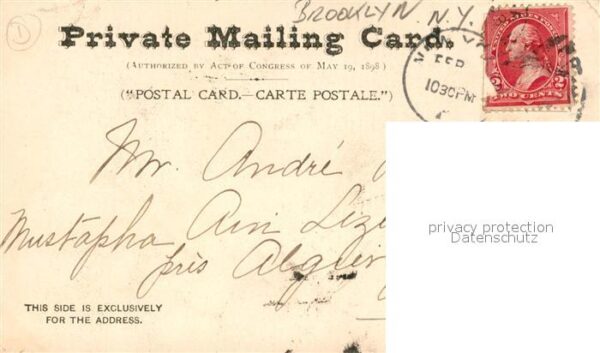 BROOKLYN N.Y.
Private Mailing Card.
(AUTHORIZED BY ACT OF CONGRESS OF MAY 19, 1898)
("POSTAL CARD.—CARTE POSTALE.")
FEB
1030PM
TWO CENTS
Mr. André
Mustapha Ain
près Alger
privacy protection
Datenschutz
THIS SIDE IS EXCLUSIVELY
FOR THE ADDRESS.